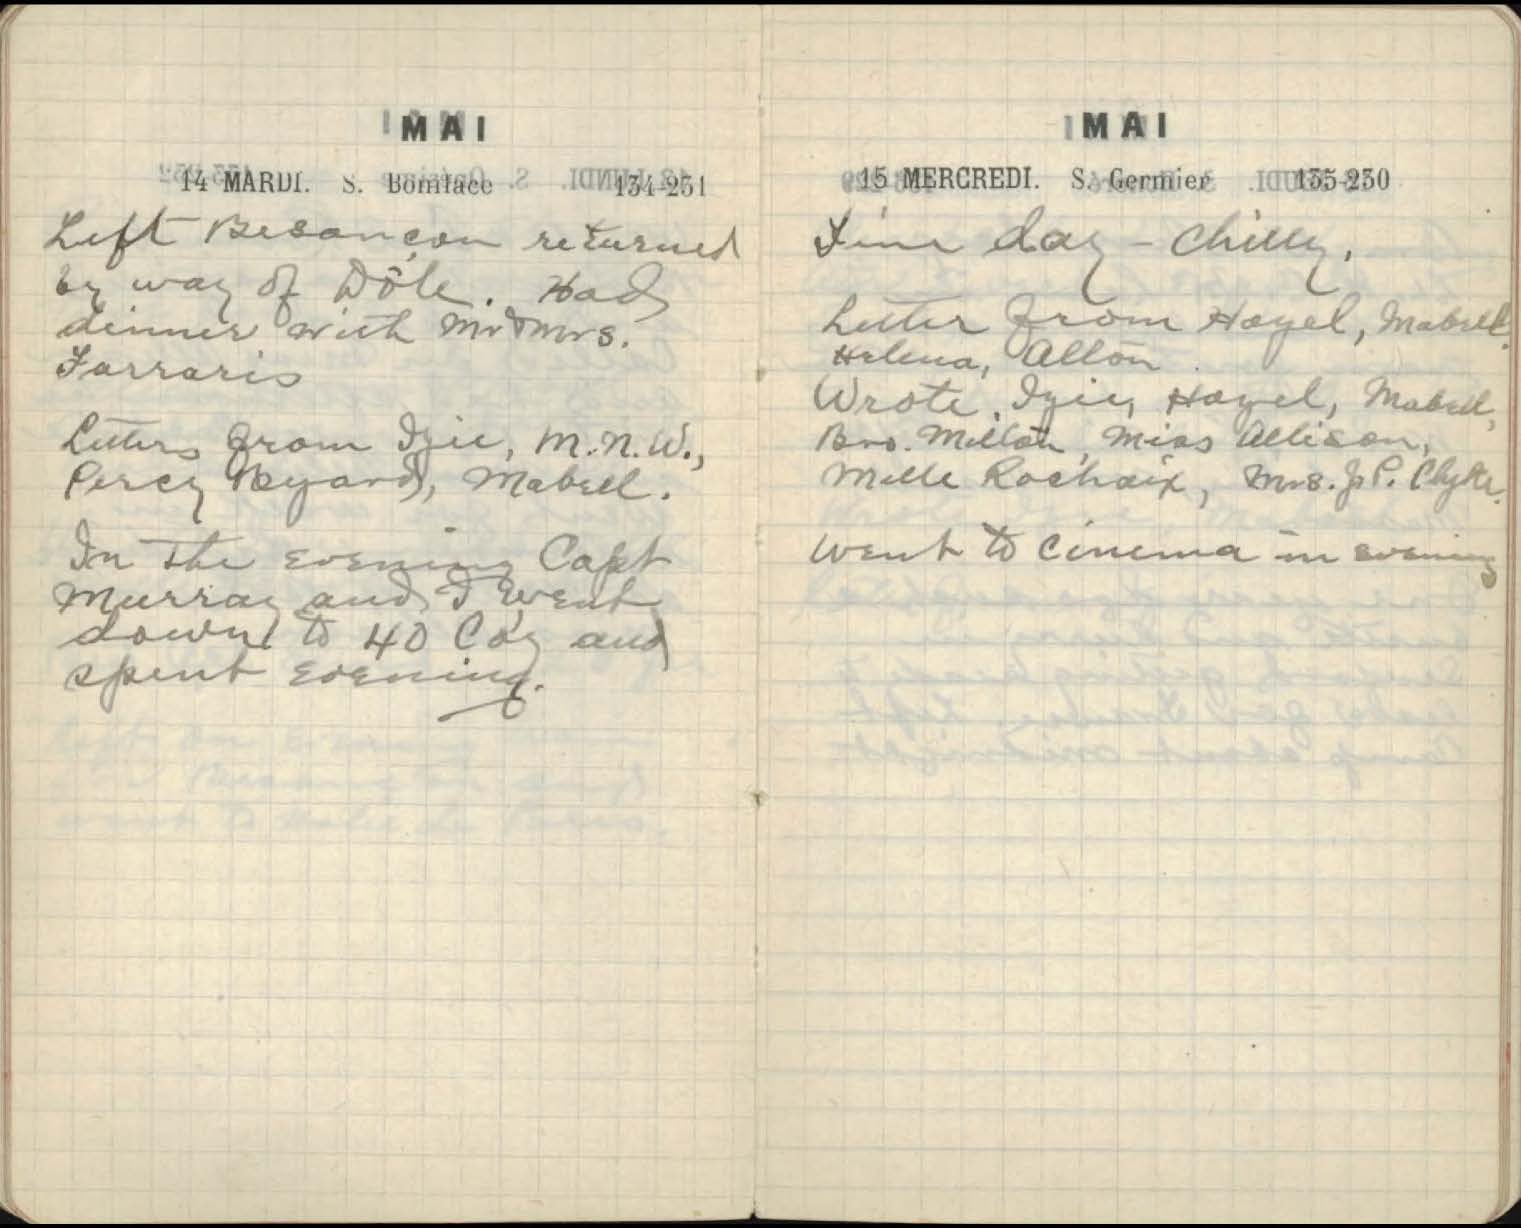 MAI
14 MARDI. S. Boniface 134-231
Left Besançon returned
by way of Dôle. Had
dinner with Mr & Mrs.
Farraris
Letters from Izie, M.N.W.,
Percy Byard, Mabell.
In the evening Capt
Murray and I went
down to 40 Co'y and
spent evening.
MAI
15 MERCREDI. S. Germier 135-230
Fine day - Chilly.
Letter from Hazel, Mabell.
Helena, Alton
Wrote, Izie, Hazel, Mabell,
Bro. Milton, Miss Allison,
Melle Rochaix, Mrs. J.P. Clyke.
Went to cinema in evening